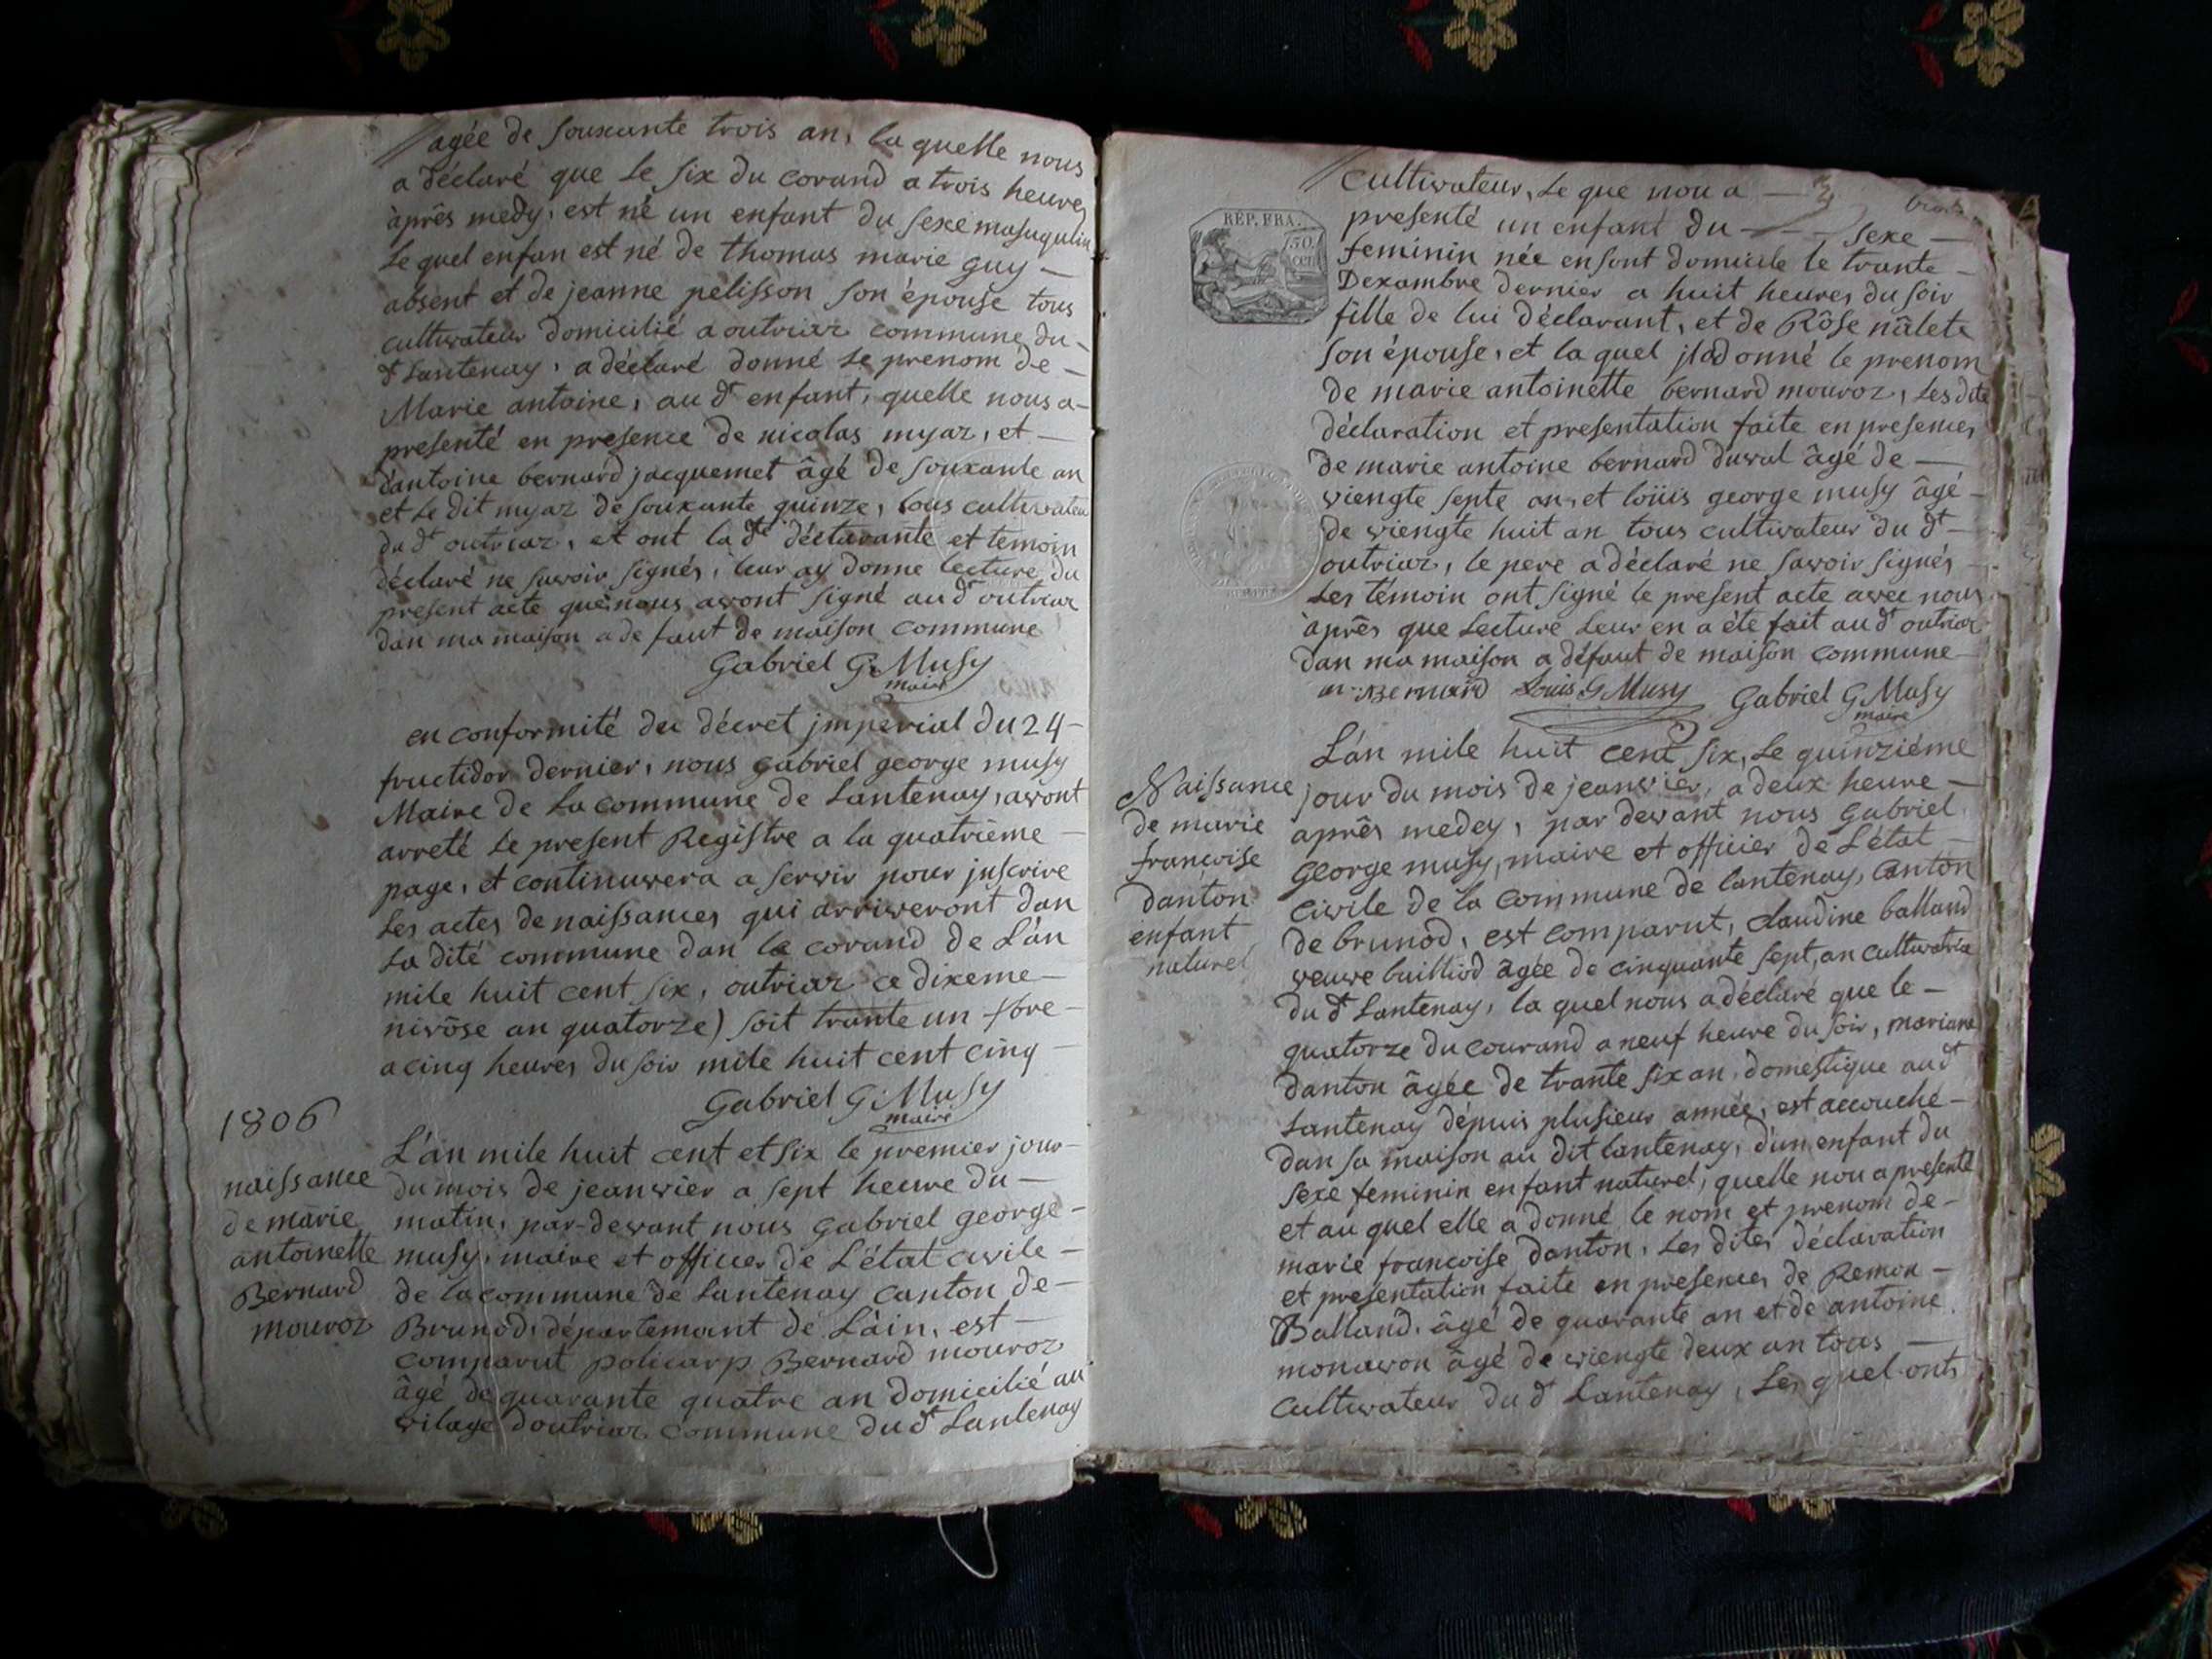 agée de souxante trois an, la quelle nous
a déclaré que le six du corand a trois heures
après medy, est né un enfant du sexe masuqulin
Le quel enfan est né de thomas marie guy —
absent et de jeanne pelisson son épouse tous
cultivateur domicilié a outriaz commune du -
dt Lantenay, a déclaré donné le prenom de -
Marie antoine, au dt enfant, quelle nous a-
presenté en presence de nicolas myaz, et —
dantoine bernard jacquemet âgé de souxante an
et le dit myaz de souxante quinze, tous cultivateu
du dt outriaz, et ont la dte déclarante et temoin
déclaré ne savoir signés, leur ay donne lecture du
present acte que nous avont signé au dt outriaz
dan ma maison a de faut de maison commune
Gabriel G. Musy
maire
en conformité du décret jmperial du 24 -
fructidor dernier, nous gabriel george musy
Maire de la commune de Lantenay, avont
arreté le present Registre a la quatrième —
page, et continuvera a servir pour jnscrire
Les actes de naissances qui arriveront dan
La dité commune dan le corand de L'an
mile huit cent six, outriaz ce dixeme —
nivôse an quatorze) soit trante un xbre -
a cinq heures du soir mile huit cent cinq —
Gabriel G. Musy
maire
1806
naissance
de marie
antoinette
Bernard
mouroz
L'an mile huit cent et six le premier jour -
du mois de jeanvier a sept heure du —
matin, par-devant nous gabriel george -
musy, maire et officier de L'état civile -
de la commune de Lantenay canton de -
Brunod, département de L'ain, est —
comparut policarp Bernard mouroz
âgé de quarante quatre an domicilié au
vilage doutriaz commune du dt Lantenay
3
RÉP. FRA.
cultivateur, Le que nou a —
presenté un enfant du — — sexe —
feminin née en sont domicile le trante -
Dexambre dernier a huit heures du soir
fille de lui déclarant, et de Rôse nâlete
son épouse, et la quel jl a donné le prenom
de marie antoinette bernard mouroz, Les dite
déclaration et presentation faite en presences
de marie antoine bernard duval âgé de —
viengte septe an, et loüis george musy âgé -
de viengte huit an tous cultivateur du dt -
outriaz, le pere a déclaré ne savoir signés -
Les témoin ont signé le present acte avec nous
après que Lecture Leur en a éte fait au dt outriaz
dan ma maison a défaut de maison commune -
m. Bernard Louis G Musy Gabriel G. Musy
maire
Naissance
de marie
francoise
danton
enfant
naturel
L'an mile huit cent six, Le quinziéme
jour du mois de jeanvier, a deux heure —
après medey, par devant nous Gabriel
George musy, maire et officier de L'état —
civile de la commune de lantenay, canton
de brunod, est comparut, claudine balland
veuve buillod âgée de cinquante sept, an cultivatrice
du dt Lantenay, la quel nous a déclaré que le -
quatorze du courand a neuf heure du soir, mariane
danton âgée de trante six an, domestique au dt
Lantenay dépuis plusieur année, est accouché -
dan sa maison au dit lantenay, d'un enfant du
sexe feminin enfant naturel, quelle nou a presenté
et au quel elle a donné le nom et prenom de -
marie francoise danton, Les dites déclaration
et présentation faite en presences de Remon -
Balland, âgé de quarante an et de antoine
monavon âgé de viengte deux an tous —
cultivateur du dt Lantenay, Les quel onts